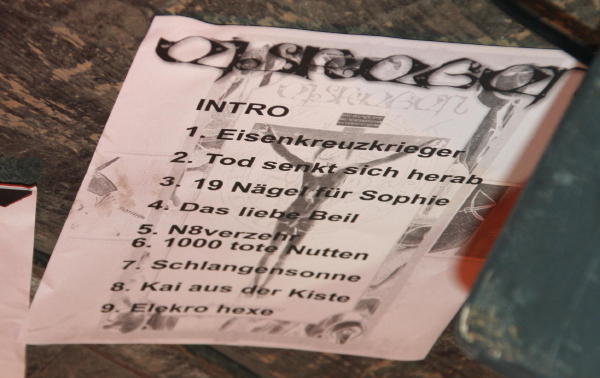 INTRO
1. Eisenkreuzkrieger
2. Tod senkt sich herab
3. 19 Nägel für Sophie
4. Das liebe Beil
5. N8verzehr
6. 1000 tote Nutten
7. Schlangensonne
8. Kai aus der Kiste
9. Elekro hexe